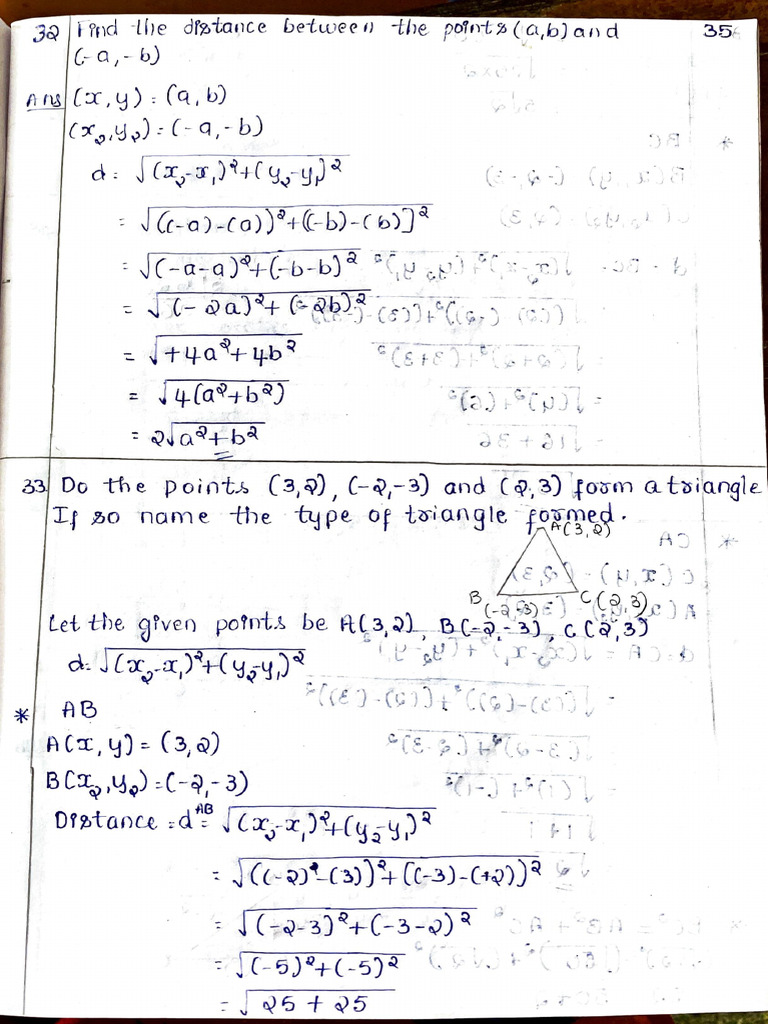 32 Find the distance between the points (a,b) and 35
(-a,-b)
Ans (x,y) = (a,b)
(x₂,y₂) = (-a,-b)
d = √(x₂-x₁)²+(y₂-y₁)²
= √((-a)-(a))²+((-b)-(b)]²
= √(-a-a)²+(-b-b)²
= √(-2a)²+(-2b)²
= √+4a²+4b²
= √4(a²+b²)
= 2√a²+b²
33 Do the points (3,2), (-2,-3) and (2,3) form a triangle
If so name the type of triangle formed.
A(3,2)
B C(2,3)
(-2,-3)
Let the given points be A(3,2), B(-2,-3), C(2,3)
d = √(x₂-x₁)²+(y₂-y₁)²
* AB
A(x,y) = (3,2)
B(x₂,y₂) = (-2,-3)
Distance = d AB = √(x₂-x₁)²+(y₂-y₁)²
= √((-2)-(3))²+((-3)-(+2))²
= √(-2-3)²+(-3-2)²
= √(-5)²+(-5)²
= √25 + 25